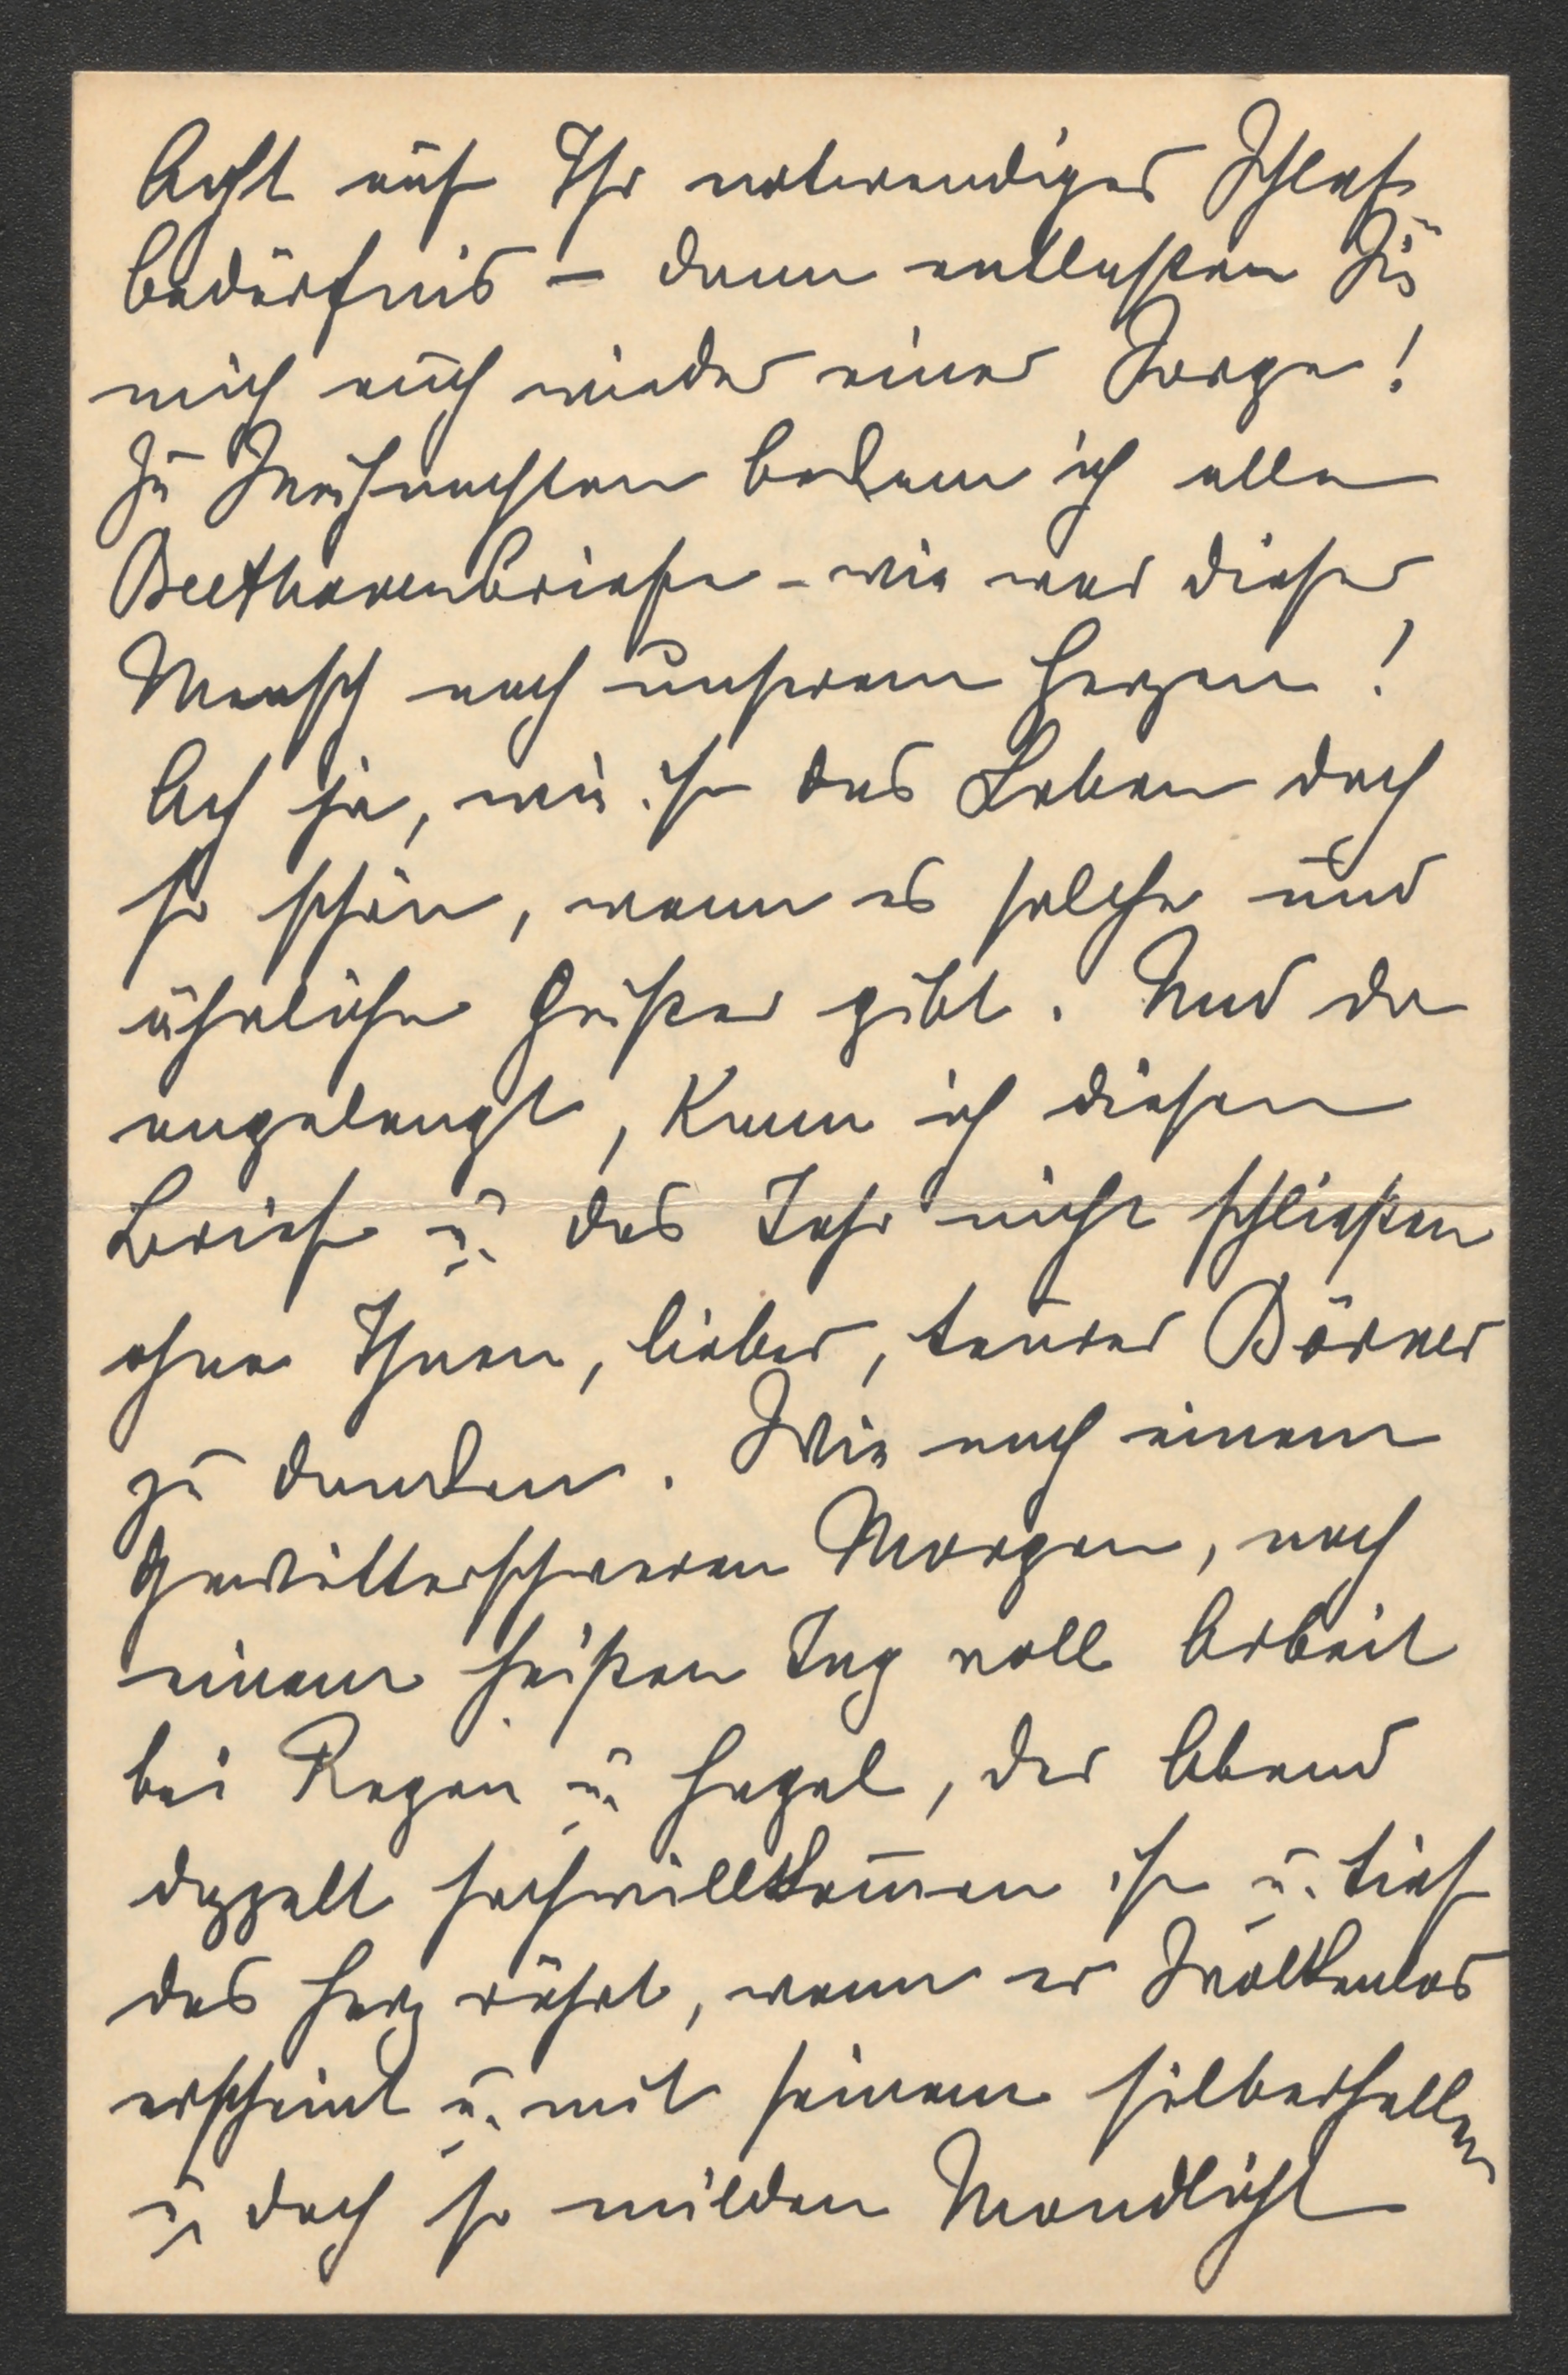 Acht auf Ihr notwendiges Schlaf-
bedürfnis – dann entlasten Sie
mich auch wieder einer Sorge!
Zu Weihnachten bekam ich alle
Beethovenbriefe – wie war dieser
Mensch nach unserem Herzen!
Ach ja, wie ist das Leben doch
so schön, wenn es solche und
ähnliche Geister gibt. Und da
angelangt, kann ich diesen
Brief u. das Jahr nicht schließen
ohne Ihnen, lieber, teurer Börner
zu danken. Wie nach einem
gewitterschweren Morgen, nach
einem heißen Tag voll Arbeit
bei Regen u. Hagel, der Abend
doppelt hochwillkom̄en ist u. tief
das Herz rührt, wenn er wolkenlos
erscheint u. mit seinem silberhellen
u. doch so milden Mondlicht